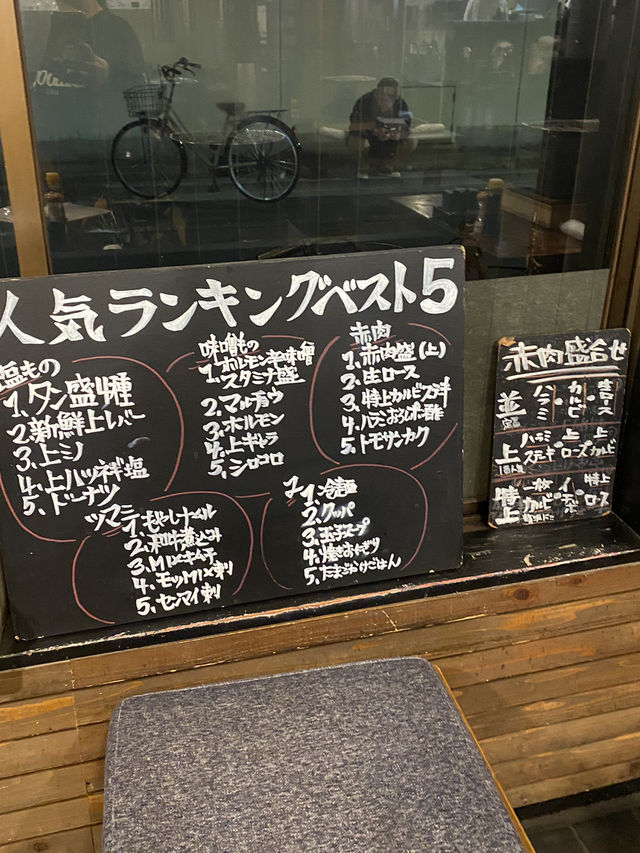 人気ランキングベスト5
塩もの
1. タン盛4種
2. 新鮮上レバー
3. 上ミノ
4. 上ハツネギ塩
5. ドーナツ
味噌もの
1. ホルモン辛味噌
スタミナ盛
2. マルチョウ
3. ホルモン
4. 上ギャラ
5. シロコロ
赤肉
1. 赤肉盛(上)
2. 生ロース
3. 特上カルビ
4. ハラミおろしポン酢
5. トモサンカク
ツマミ
1. もやしナムル
2. 和牛煮込み
3. MIXキムチ
4. モツMIX刺
5. センマイ刺
1. 冷麺
2. クッパ
3. 玉子スープ
4. 焼きおにぎり
5. たまごかけごはん
赤肉盛合せ
並 ハラミ・カルビ・生ロース
上 ハラミステーキ・上ロース・上カルビ
1番人気
特上 一枚カルビ・特上ロース